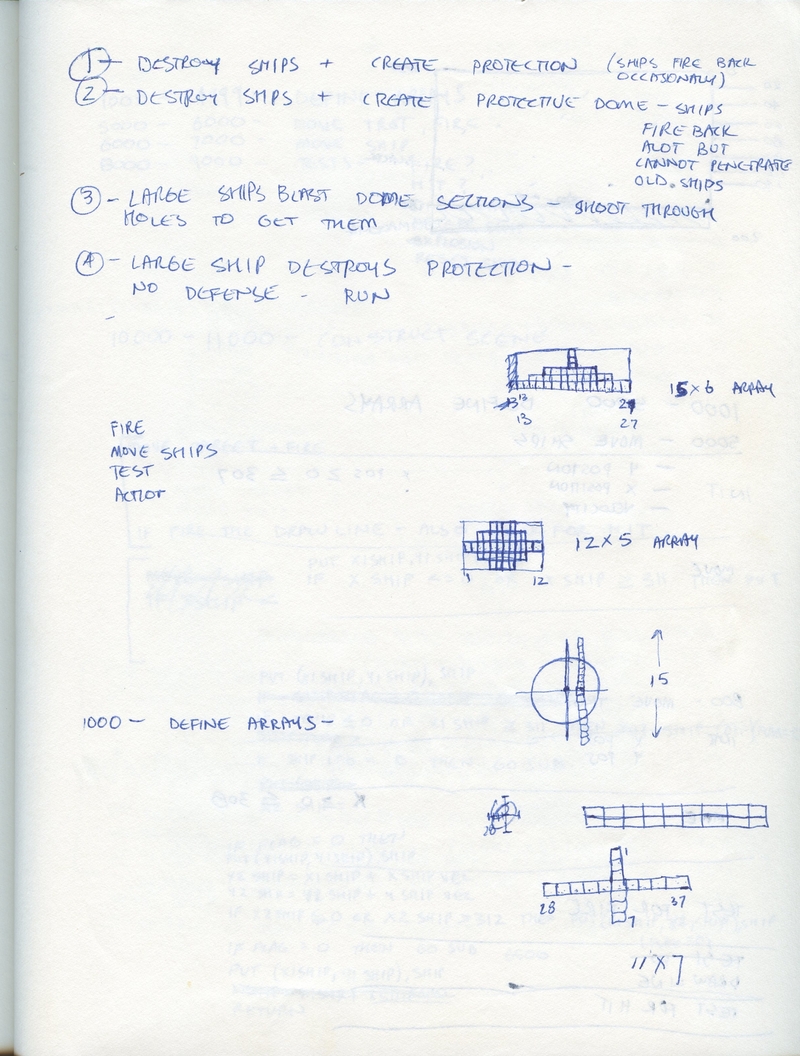 1 - DESTROY SHIPS + CREATE PROTECTION (SHIPS FIRE BACK
OCCASIONALY)
2 - DESTROY SHIPS + CREATE PROTECTIVE DOME - SHIPS
FIRE BACK
ALOT BUT
CANNOT PENETRATE
OLD SHIPS
3 - LARGE SHIPS BLAST DOME SECTIONS - SHOOT THROUGH
HOLES TO GET THEM
4 - LARGE SHIP DESTROYS PROTECTION -
NO DEFENSE - RUN
13
13
27
15 X 6 ARRAY
FIRE
MOVE SHIPS
TEST
12 X 5 ARRAY
1
12
15
1000 - DEFINE ARRAYS -
28
1
28
37
7
11 X 7